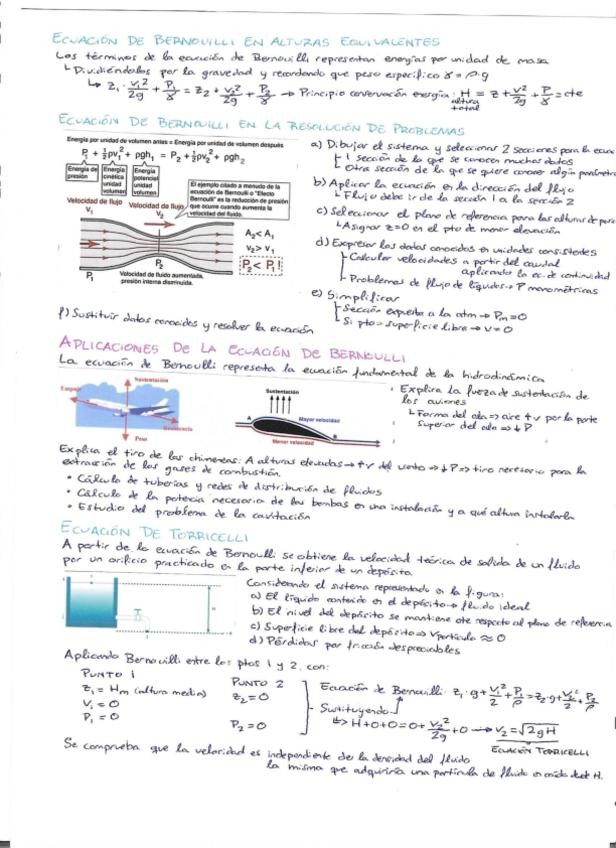 ECUACIÓN DE BERNOUILLI EN ALTURAS EQUIVALENTES
Los términos de la ecuación de Bernouilli representan energías por unidad de masa
Dividiéndolos por la gravedad y recordando que peso específico γ = ρ·g
z₁ · v₁²/2g + P₁/γ = z₂ + v₂²/2g + P₂/γ → Principio conservación energía: H = z + v²/2g + P/γ = cte
altura total
ECUACIÓN DE BERNOUILLI EN LA RESOLUCIÓN DE PROBLEMAS
Energía por unidad de volumen antes = Energía por unidad de volumen después
P₁ + ½ρv₁² + ρgh₁ = P₂ + ½ρv₂² + ρgh₂
Energía de presión
Energía cinética unidad volumen
Energía potencial unidad volumen
El ejemplo citado a menudo de la ecuación de Bernoulli o "Efecto Bernoulli" es la reducción de presión que ocurre cuando aumenta la velocidad del fluido.
Velocidad de flujo V₁
Velocidad de flujo V₂
A₂ < A₁
V₂ > V₁
P₂ < P₁!
P₁
P₂
Velocidad de fluido aumentada, presión interna disminuida.
a) Dibujar el sistema y seleccionar 2 secciones para la ecua
1 sección de la que se conocen muchos datos
Otra sección de la que se quiere conocer algún parámetro
b) Aplicar la ecuación en la dirección del flujo
Flujo debe ir de la sección 1 a la sección 2
c) Seleccionar el plano de referencia para las alturas de po
Asignar z=0 en el pto de menor elevación
d) Expresar los datos conocidos en unidades consistentes
Calcular velocidades a partir del caudal
aplicando la ec. de continuidad
Problemas de flujo de líquidos → P manométricas
e) Simplificar
Sección expuesta a la atm → Pm = 0
Si pto = superficie libre → v = 0
f) Sustituir datos conocidos y resolver la ecuación
APLICACIONES DE LA ECUACIÓN DE BERNOULLI
La ecuación de Bernoulli representa la ecuación fundamental de la hidrodinámica
Sustentación
Empuje
Resistencia
Peso
Sustentación
A
Mayor velocidad
B
Menor velocidad
Explica la fuerza de sustentación de
los aviones
Forma del ala ⇒ aire ↑v por la parte
superior del ala ⇒ ↓P
Explica el tiro de las chimeneas: A alturas elevadas → ↑v del viento ⇒ ↓P ⇒ tiro necesario para la
extracción de los gases de combustión.
• Cálculo de tuberías y redes de distribución de fluidos
• Cálculo de la potencia necesaria de las bombas en una instalación y a qué altura instalarla
• Estudio del problema de la cavitación
ECUACIÓN DE TORRICELLI
A partir de la ecuación de Bernoulli se obtiene la velocidad teórica de salida de un fluido
por un orificio practicado en la parte inferior de un depósito.
Considerando el sistema representado en la figura:
a) El líquido contenido en el depósito → fluido ideal
b) El nivel del depósito se mantiene cte respecto al plano de referencia
c) Superficie libre del depósito → Vpartícula ≈ 0
d) Pérdidas por fricción despreciables
Aplicando Bernouilli entre los ptos 1 y 2, con:
PUNTO 1
z₁ = Hm (altura media)
V₁ = 0
P₁ = 0
PUNTO 2
z₂ = 0
P₂ = 0
Ecuación de Bernoulli: z₁·g + v₁²/2 + P₁/ρ = z₂·g + v₂²/2 + P₂/ρ
Sustituyendo
H + 0 + 0 = 0 + v₂²/2g + 0 → v₂ = √2gH
ECUACIÓN TORRICELLI
Se comprueba que la velocidad es independiente de la densidad del fluido
la misma que adquiriría una partícula de fluido en caída H.